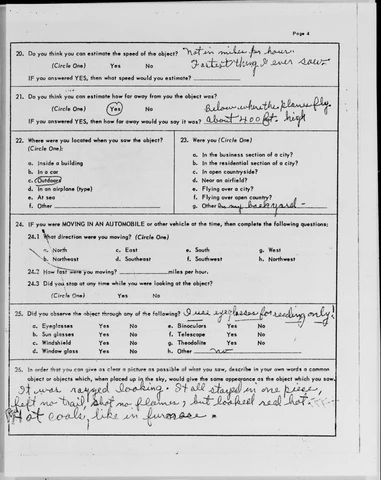 Page 4
20. Do you think you can estimate the speed of the object? Not in miles per hour.
(Circle One) Yes No Fastest thing I ever saw.
IF you answered YES, then what speed would you estimate?
21. Do you think you can estimate how far away from you the object was?
(Circle One) Yes No Below where the planes fly.
IF you answered YES, then how far away would you say it was? About 400 ft. high
22. Where were you located when you saw the object?
(Circle One):
a. Inside a building
b. In a car
c. Outdoors
d. In an airplane (type)
e. At sea
f. Other
23. Were you (Circle One)
a. In the business section of a city?
b. In the residential section of a city?
c. In open countryside?
d. Near an airfield?
e. Flying over a city?
f. Flying over open country?
g. Other In my backyard
24. IF you were MOVING IN AN AUTOMOBILE or other vehicle at the time, then complete the following questions:
24.1 What direction were you moving? (Circle One)
a. North c. East e. South g. West
b. Northeast d. Southeast f. Southwest h. Northwest
24.2 How fast were you moving? miles per hour.
24.3 Did you stop at any time while you were looking at the object?
(Circle One) Yes No
25. Did you observe the object through any of the following? I use eyeglasses for reading only!
a. Eyeglasses Yes No e. Binoculars Yes No
b. Sun glasses Yes No f. Telescope Yes No
c. Windshield Yes No g. Theodolite Yes No
d. Window glass Yes No h. Other no
26. In order that you can give as clear a picture as possible of what you saw, describe in your own words a common
object or objects which, when placed up in the sky, would give the same appearance as the object which you saw.
It was ragged looking. It all stayed in one piece,
left no trail, shot no flames, but looked red hot.
Hot coals, like in furnace.